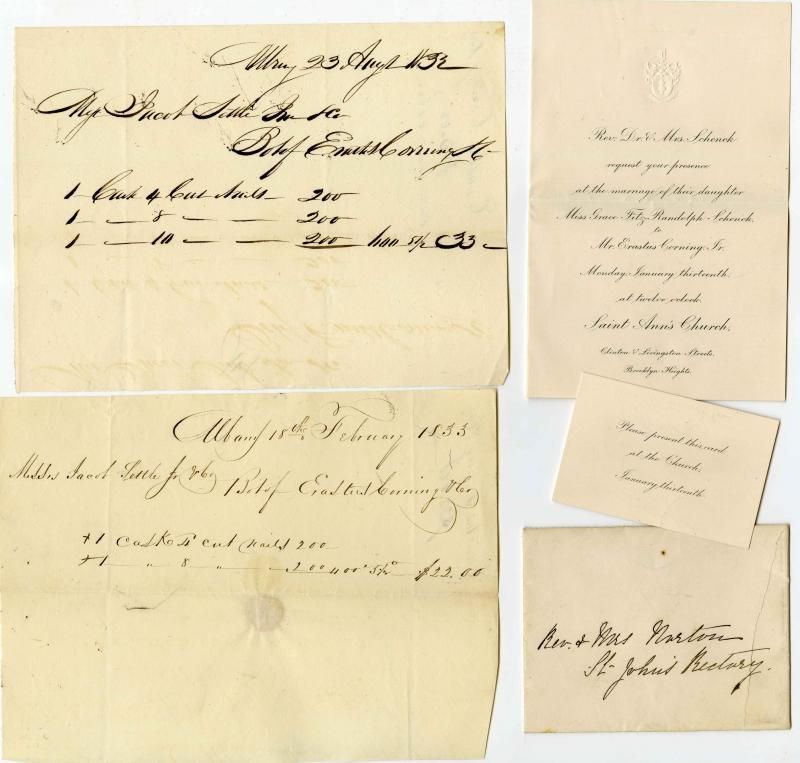 Albny 23 Augt 1832
Jacob Settle Jnr & Co
Bot of Erastus Corning & Co
1 Cask 4 Cut Nails 200
1 — 8 — — 200
1 — 10 — — 200 600 5½ 33 —
Albany 18th February 1833
Messrs Jacob Settle Jr & Co
Bot of Erastus Corning & Co
+1 Cask 4d cut nails 200
+1 " 8 " 200 400 5½ $22.00
Rev. Dr. & Mrs. Schenck
request your presence
at the marriage of their daughter
Miss Grace Fitz-Randolph Schenck,
to
Mr. Erastus Corning, Jr.
Monday, January thirteenth,
at twelve o'clock,
Saint Ann's Church,
Clinton & Livingston Streets,
Brooklyn Heights.
Please present this card
at the Church,
January thirteenth.
Rev. & Mrs Norton
St. John's Rectory.